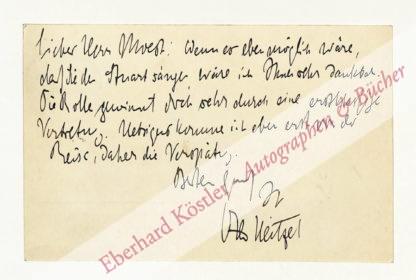 Lieber Herr Moest! Wenn es eben möglich wäre,
wäre ich Ihnen sehr dankbar.
Die Rolle gewinnt doch sehr durch eine
Vertretung. Uebrigens komme ich eben erst von der
Reise, daher die Verspätung.
Besten Gruß
Ihr
Otto Neitzel
Eberhard Köstler Autographen & Bücher